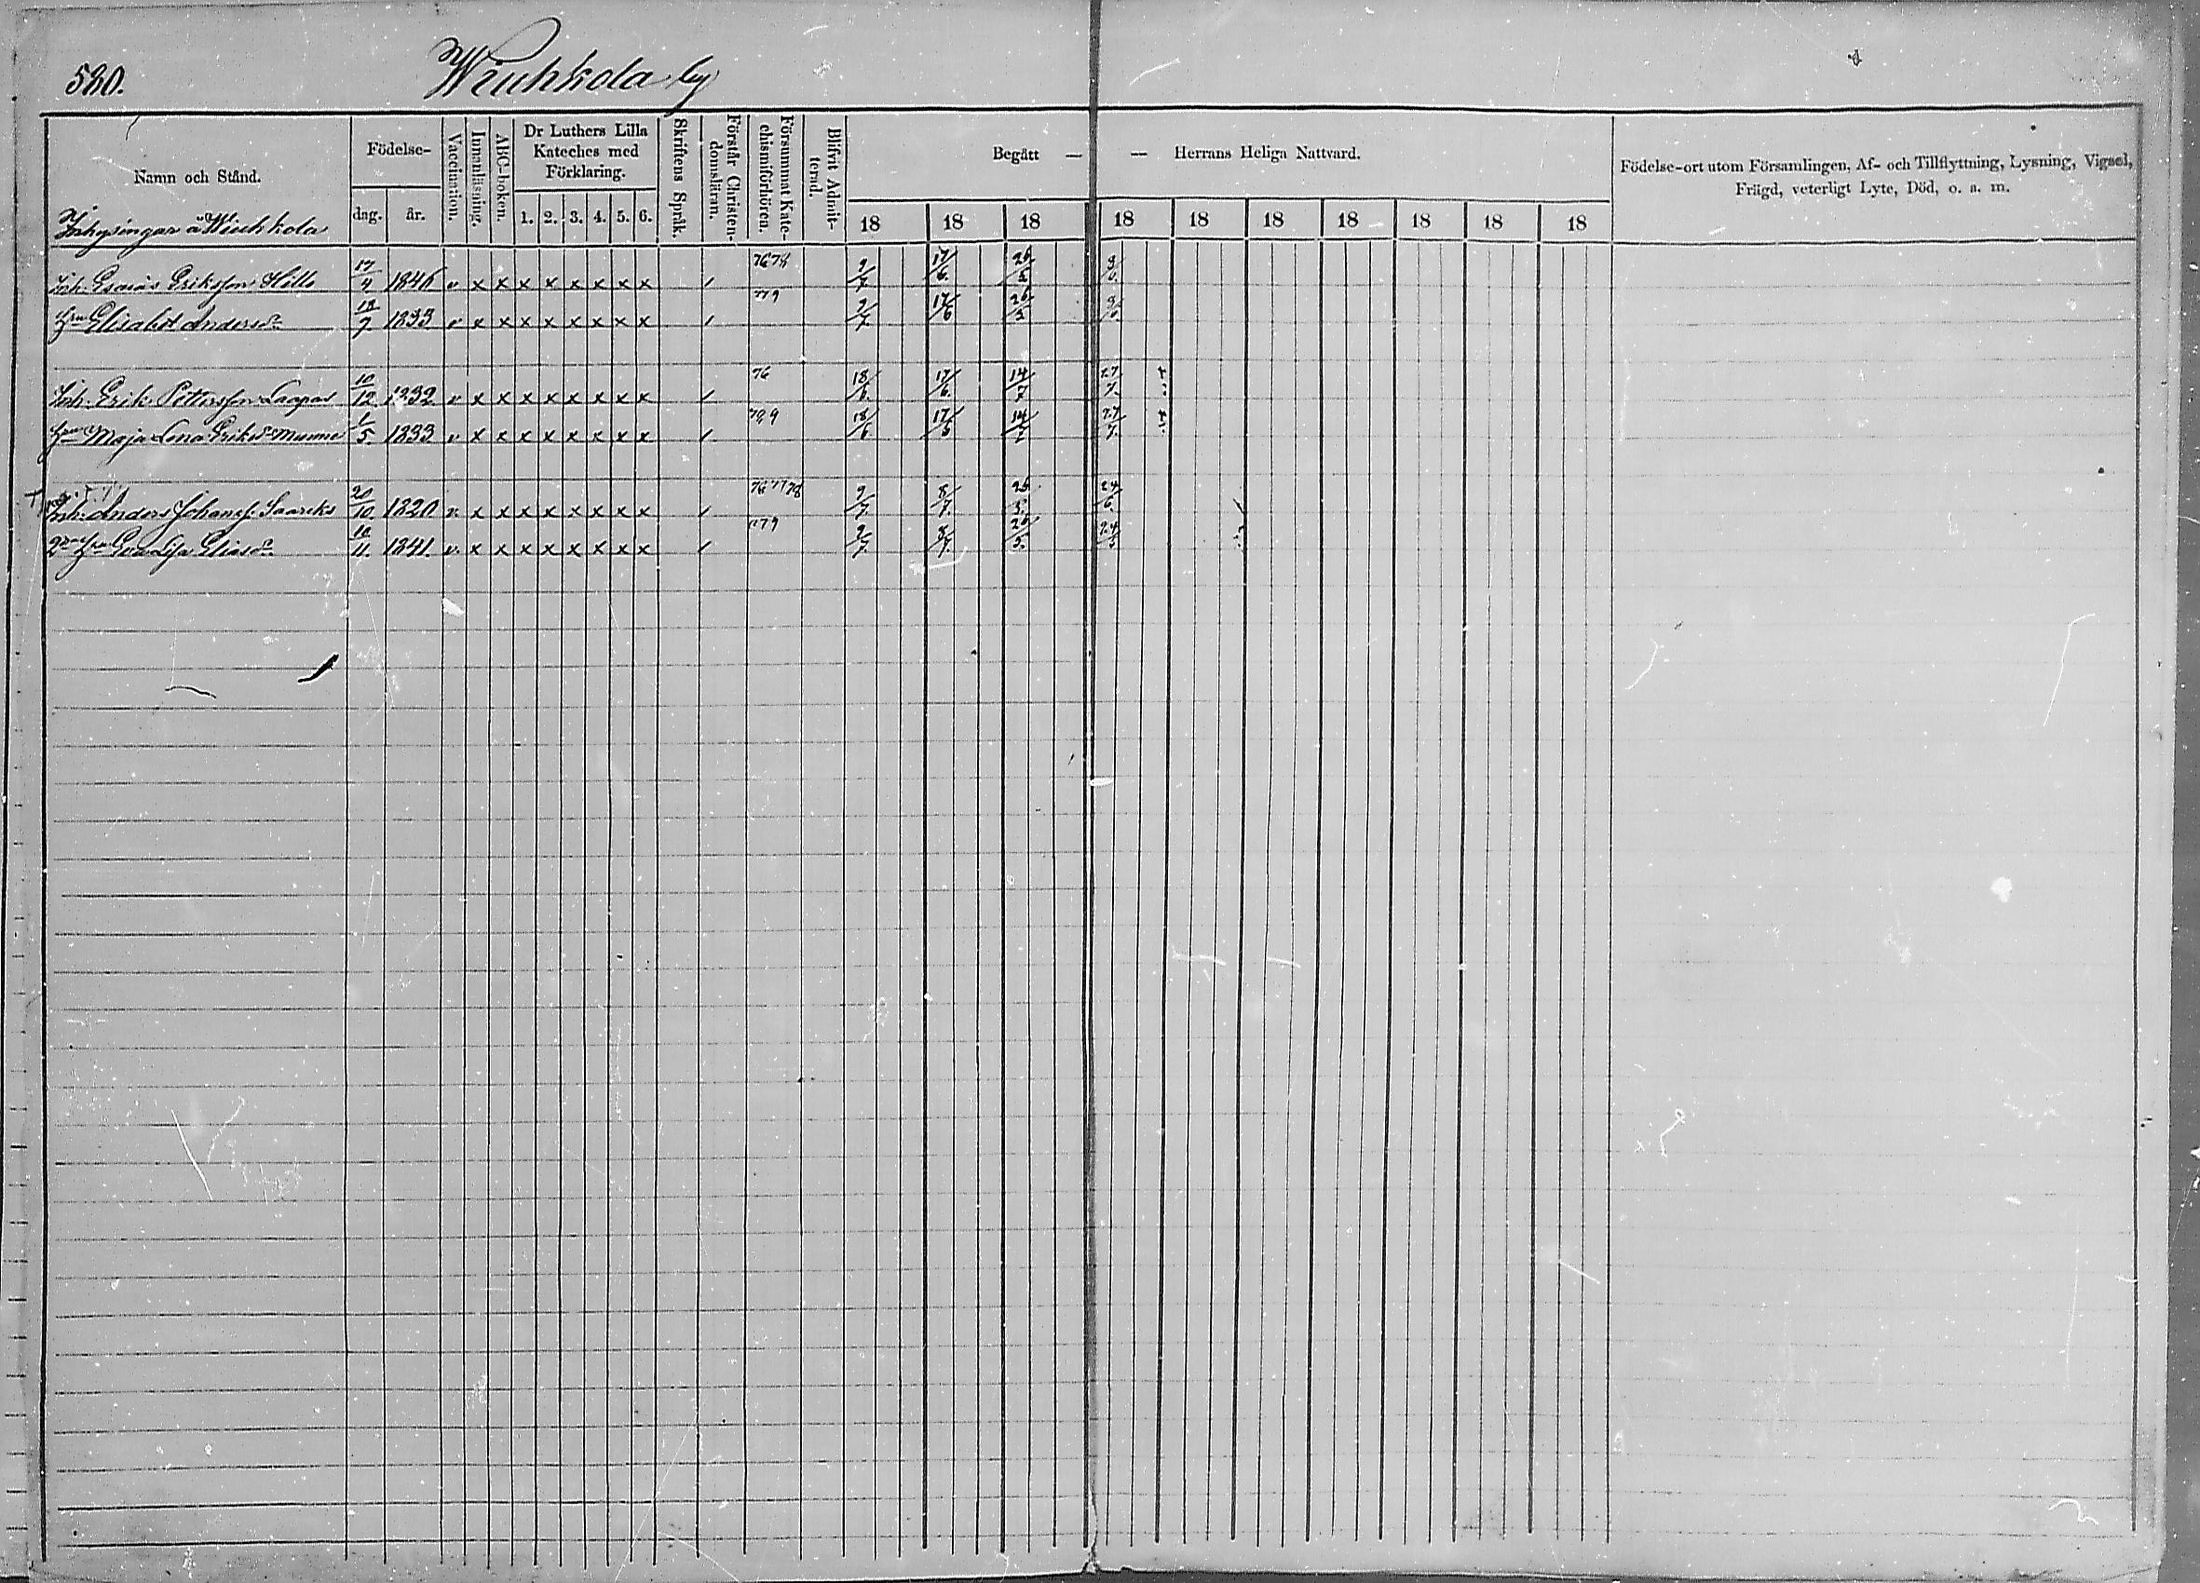 580. Wiuhkola by
Namn och Stånd.
Födelse-
dag. år.
Vaccination.
Innanläsning.
ABC-boken.
Dr Luthers Lilla
Kateches med
Förklaring.
1. 2. 3. 4. 5. 6.
Skriftens Språk.
Förstår Christen-
domsläran.
Försummat Kate-
chismiförhören.
Blifvit Admit-
terad.
Begått — — Herrans Heliga Nattvard.
18 18 18 18 18 18 18 18 18 18
Födelse-ort utom Församlingen, Af- och Tillflyttning, Lysning, Vigsel,
Frägd, veterligt Lyte, Död, o. a. m.
Inhysingar å Wiuhkola
Inh. Esaias Eriksson Hillo 17/4 1846 v x x x x x x x x / 76 78 9/7 17/6 26/5
Hru Elisabet Andersdr 18/7 1833 v x x x x x x x x / 9/7 17/6 26/5
Inh. Erik Pettersson 10/12 1832 v x x x x x x x x / 76 18/6 17/6 14/7 27/7
Hru Maja Lena Eriksdr 1/5 1833 v x x x x x x x x / 18/6 14/7 27/7
Inh. Anders Johansf. 20/10 1820 v. x x x x x x x x / 76 77 78 9/7 8/7 24/6
2dra Hru Elisadr 10/11. 1841. v. x x x x x x x x / 9/7 8/7